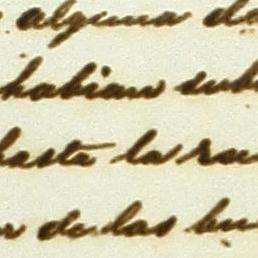 alguna da
habian sub
hasta la ra
de las bu